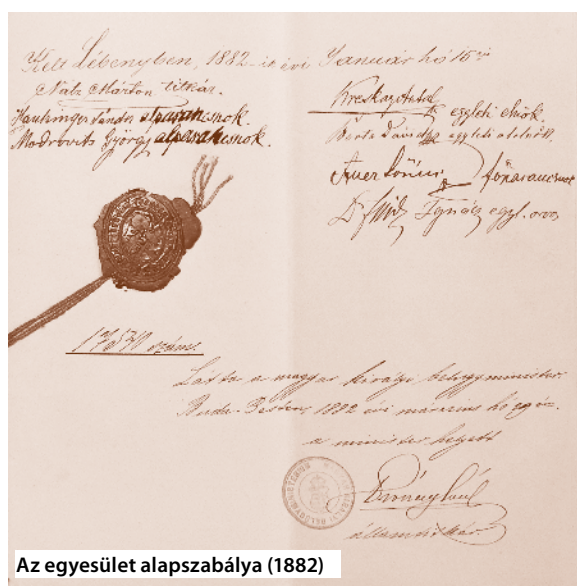 Kelt Lébenyben, 1882-ik évi Január hó 15-én
Nátz Márton titkár.
Hautzinger Sándor alparancsnok.
Modrovits György alparancsnok.
egyleti elnök.
Dávid egyleti alelnök.
Auer főparancsnok
Dr Ignácz egyl. orvos
17540 szám.
Látta a magyar királyi belügyminister.
Buda-Pesten, 1882 évi március hó
a minister helyett
államtitkár.
Az egyesület alapszabálya (1882)